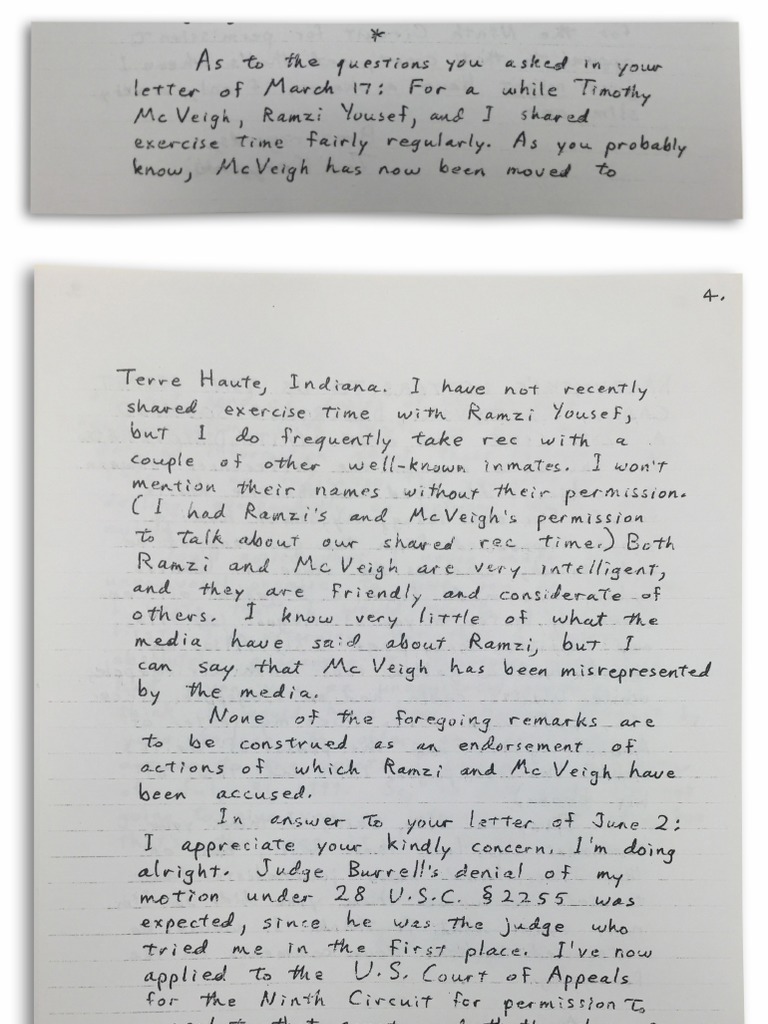 *
As to the questions you asked in your
letter of March 17: For a while Timothy
McVeigh, Ramzi Yousef, and I shared
exercise time fairly regularly. As you probably
know, McVeigh has now been moved to
4.
Terre Haute, Indiana. I have not recently
shared exercise time with Ramzi Yousef,
but I do frequently take rec with a
couple of other well-known inmates. I won't
mention their names without their permission.
(I had Ramzi's and McVeigh's permission
to talk about our shared rec time.) Both
Ramzi and McVeigh are very intelligent,
and they are friendly and considerate of
others. I know very little of what the
media have said about Ramzi, but I
can say that McVeigh has been misrepresented
by the media.
None of the foregoing remarks are
to be construed as an endorsement of
actions of which Ramzi and McVeigh have
been accused.
In answer to your letter of June 2:
I appreciate your kindly concern. I'm doing
alright. Judge Burrell's denial of my
motion under 28 U.S.C. §2255 was
expected, since he was the judge who
tried me in the first place. I've now
applied to the U.S. Court of Appeals
for the Ninth Circuit for permission to